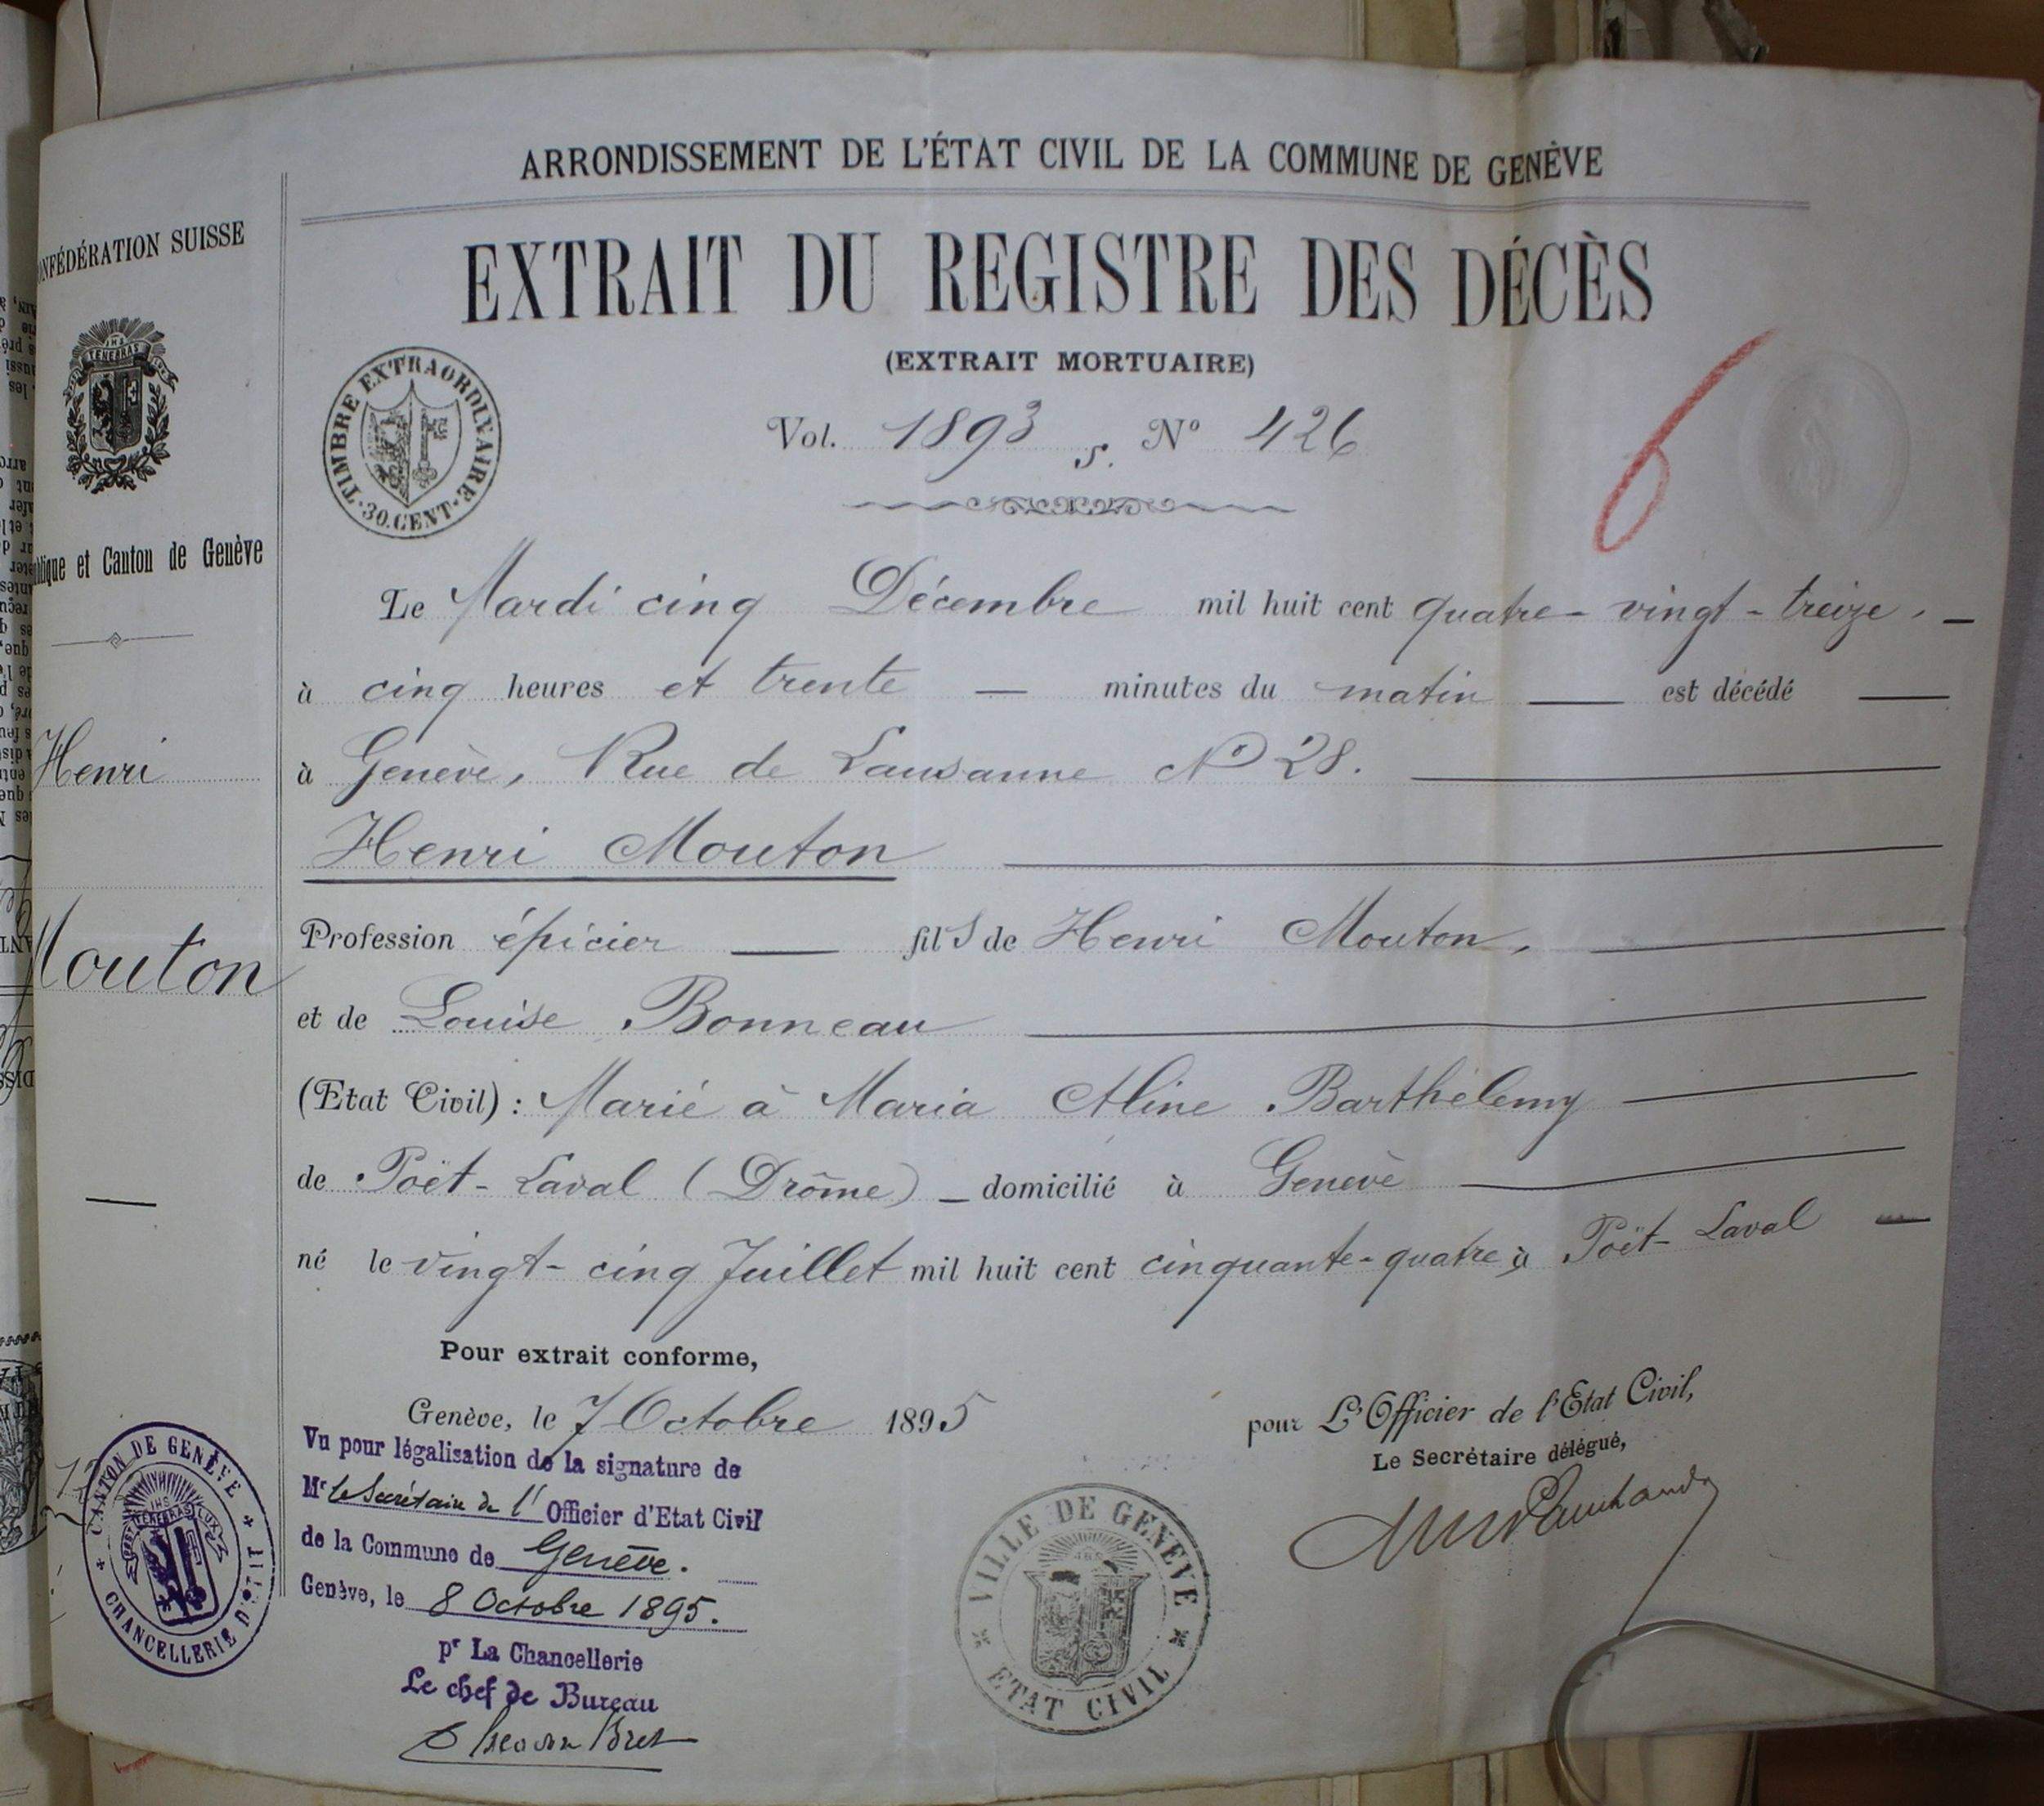 ARRONDISSEMENT DE L'ÉTAT CIVIL DE LA COMMUNE DE GENÈVE
EXTRAIT DU REGISTRE DES DÉCÈS
(EXTRAIT MORTUAIRE)
Vol. 1893 s. N° 426
6
TIMBRE EXTRAORDINAIRE
30. CENT.
ONFÉDÉRATION SUISSE
POST TENEBRAS LUX
ublique et Canton de Genève
Henri
Mouton
Le Mardi cinq Décembre mil huit cent quatre-vingt-treize,
à cinq heures et trente — minutes du matin — est décédé —
à Genève, Rue de Lausanne N° 28.
Henri Mouton
Profession épicier — fils de Henri Mouton,
et de Louise Bonneau
(Etat Civil) : Marié à Maria Aline Barthélemy
de Poët-Laval (Drôme) — domicilié à Genève
né le vingt-cinq Juillet mil huit cent cinquante-quatre à Poët-Laval —
Pour extrait conforme,
Genève, le 7 Octobre 1895
pour L'Officier de l'Etat Civil,
Le Secrétaire délégué,
Vu pour légalisation de la signature de
Mr le Secrétaire de l' Officier d'Etat Civil
de la Commune de Genève.
Genève, le 8 Octobre 1895.
pr La Chancellerie
Le chef de Bureau
CANTON DE GENÈVE
CHANCELLERIE D'ETAT
VILLE DE GENEVE
ETAT CIVIL